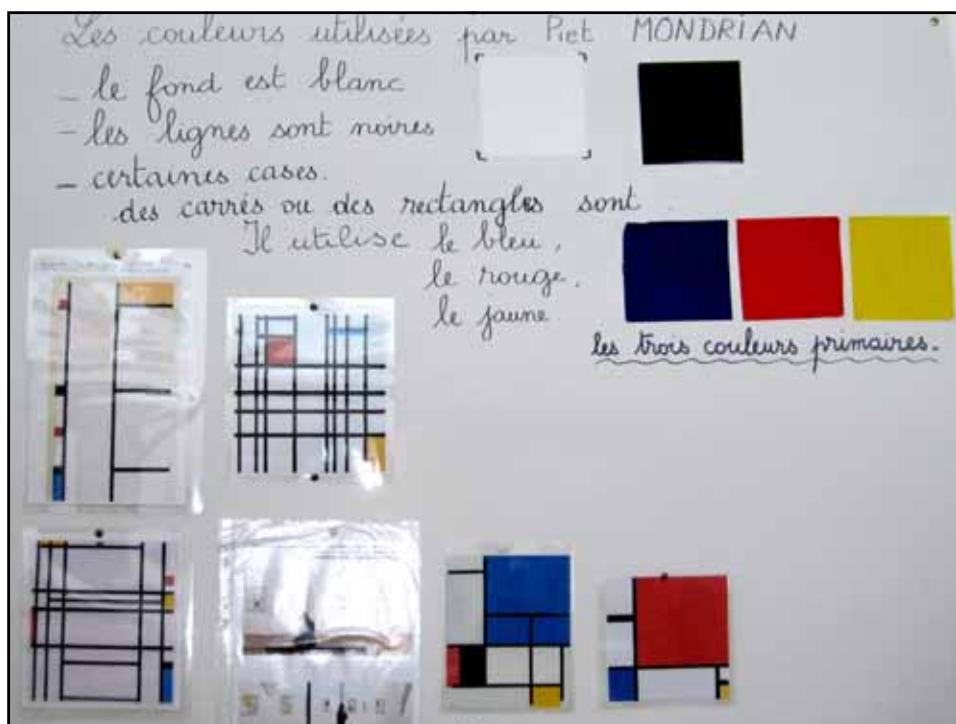 Les couleurs utilisées par Piet MONDRIAN
– le fond est blanc
– les lignes sont noires
– certaines cases.
des carrés ou des rectangles sont
Il utilise le bleu,
le rouge.
le jaune
les trois couleurs primaires.